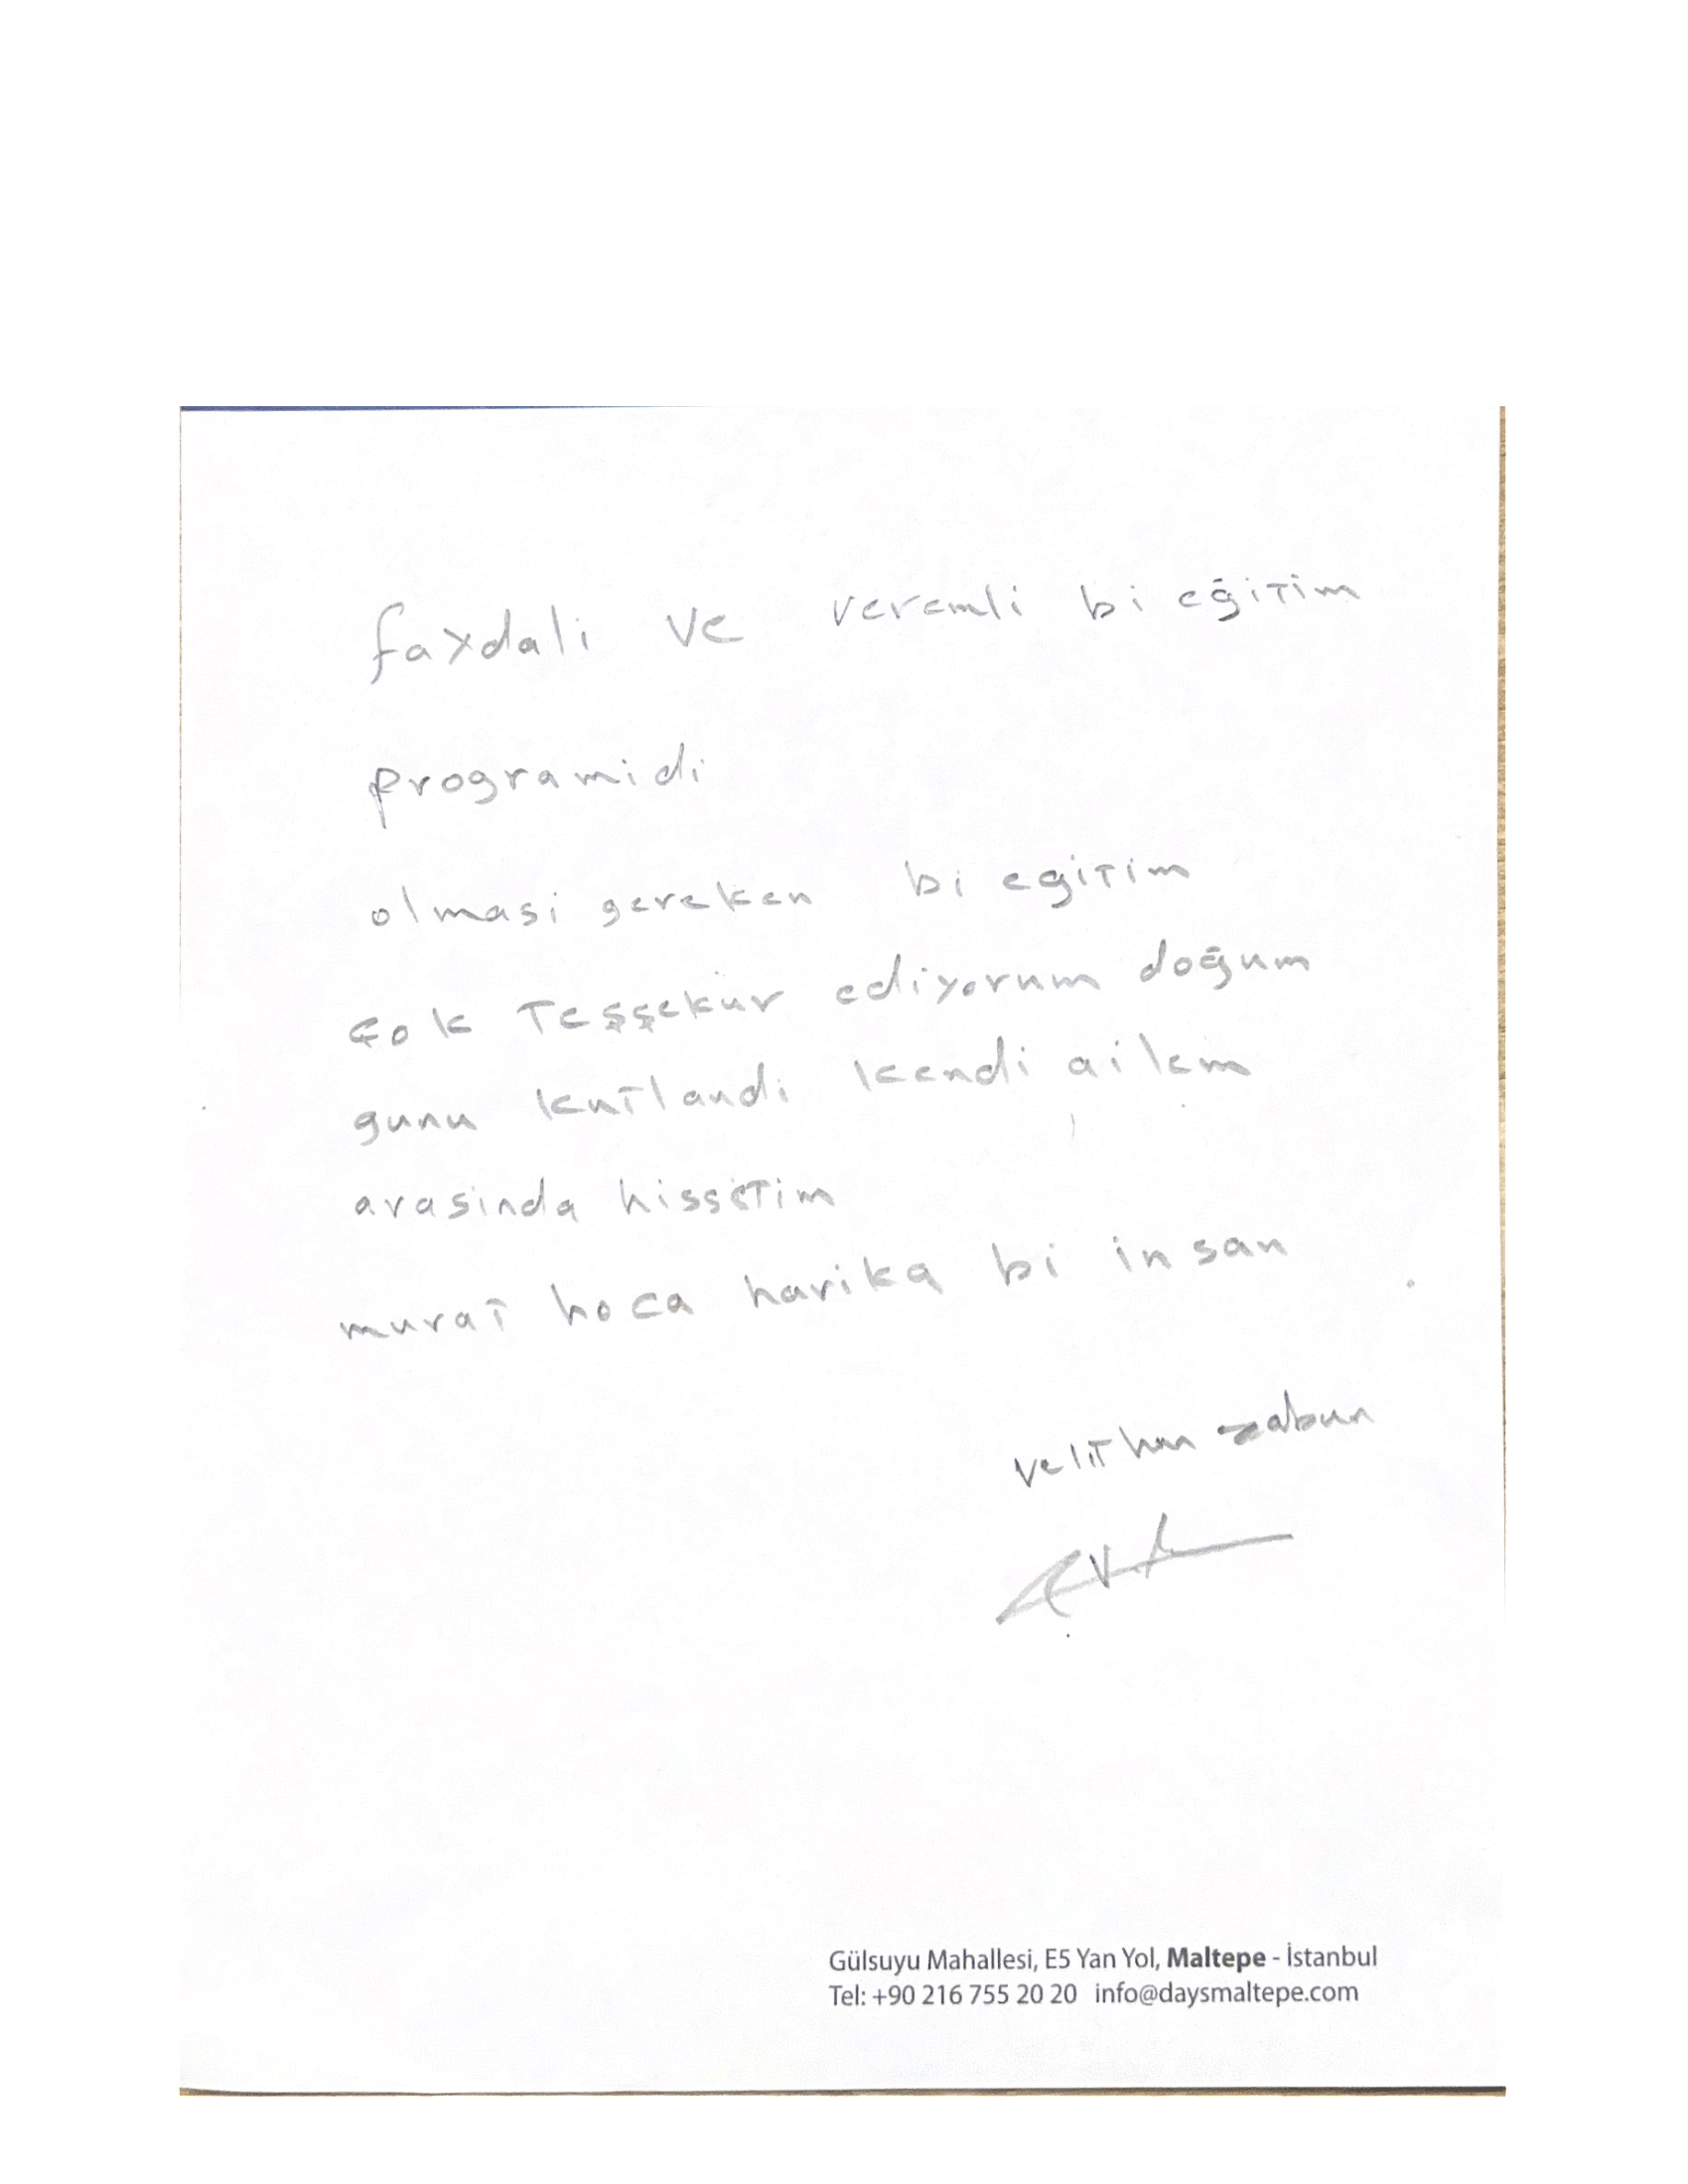 faydali ve veremli bi eğitim
programidi
olmasi gereken bi egitim
çok Teşşekür ediyorum doğum
gunu kutlandi kendi ailem
arasinda hissetim
murat hoca harika bi insan
velithan zabun
Gülsuyu Mahallesi, E5 Yan Yol, Maltepe - İstanbul
Tel: +90 216 755 20 20 info@daysmaltepe.com